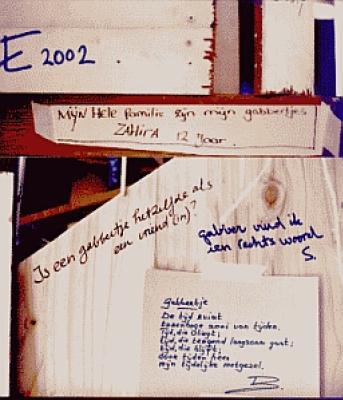 E 2002
Mijn Hele familie zijn mijn gabbertjes
ZAHIRA 12 Jaar.
Is een gabbertje hetzelfde als
een vriend(in)?
gabber vind ik
een rechts woord
S.
Gabbertje
De tijd
van tijden.
tijd, die vliegt;
tijd, die langzaam gaat;
tijd, die blijft;
door tijden heen
mijn tijdelijke metgezel.